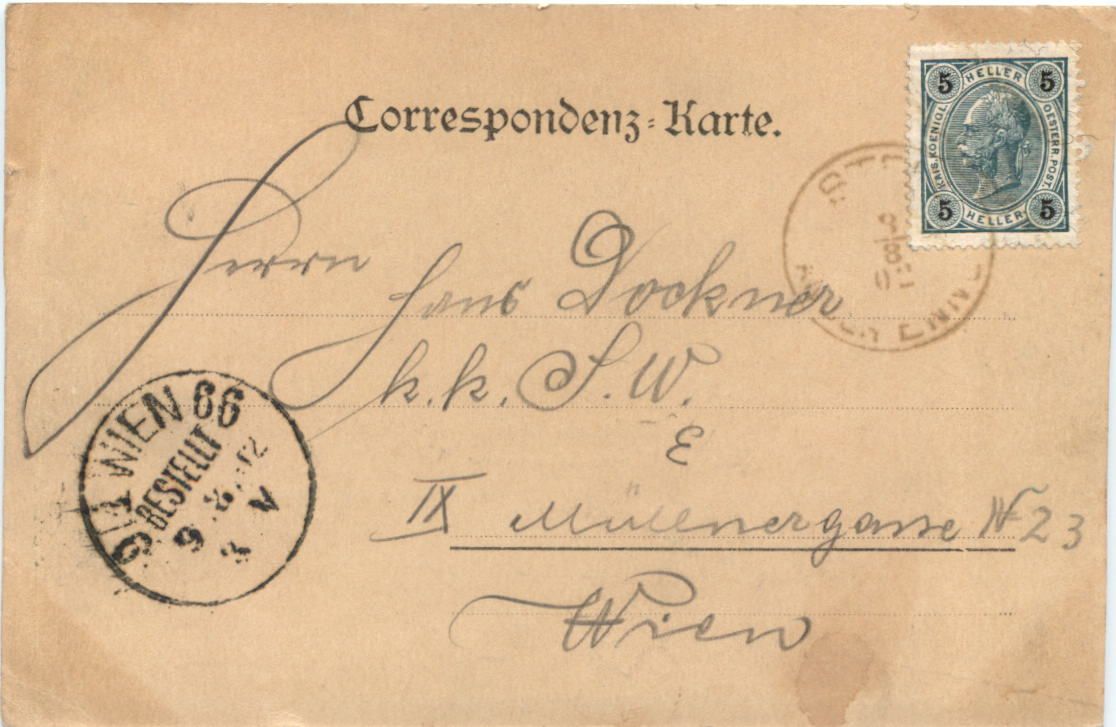 Correspondenz-Karte.
5 HELLER 5
KAIS. KOENIGL. OESTERR. POST.
5 HELLER 5
Herrn
Hans Dockner
k.k. S. W.
E
IX Müllnergasse N 23
Wien
9/1 WIEN 66
BESTELLT